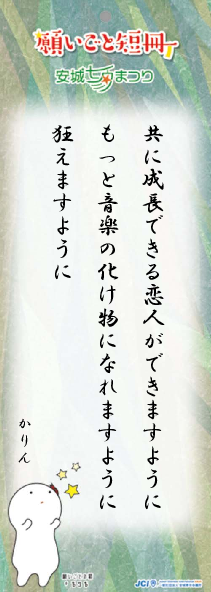 願いごと短冊
安城七夕まつり
共に成長できる恋人ができますように
もっと音楽の化け物になれますように
狂えますように
かりん
JCI